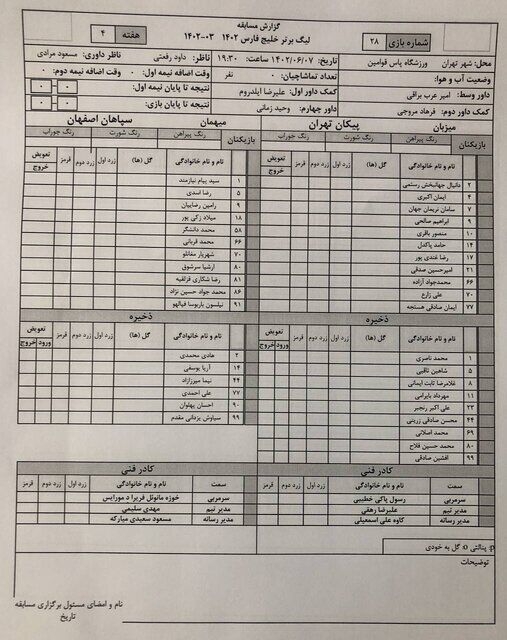 گزارش مسابقه
لیگ برتر خلیج فارس ۱۴۰۲ ۰۳-۱۴۰۲
شماره بازی ۲۸
هفته ۴
محل: شهر تهران ورزشگاه پاس قوامین تاریخ: ۱۴۰۲/۰۶/۰۷ ساعت: ۱۹:۳۰ ناظر: داود رفعتی ناظر داوری: مسعود مرادی
وضعیت آب و هوا: تعداد تماشاچیان: ۰ نفر وقت اضافه نیمه اول: ۰ وقت اضافه نیمه دوم: ۰
داور وسط: امیر عرب براقی کمک داور اول: علیرضا ایلدروم نتیجه تا پایان نیمه اول: ۰ - ۰
کمک داور دوم: فرهاد مروجی داور چهارم: وحید زمانی نتیجه تا پایان بازی: ۰ - ۰
میزبان پیکان تهران
بازیکنان رنگ پیراهن رنگ شورت رنگ جوراب
نام و نام خانوادگی گل (ها) زرد اول زرد دوم قرمز تعویض خروج
۲ دانیال جهانبخش رستمی
۴ ایمان اکبری
۷ سامان نریمان جهان
۹ ابراهیم صالحی
۱۰ منصور باقری
۱۴ حامد پاکدل
۱۷ رضا غندی پور
۲۱ امیرحسین صدقی
۶۶ محمدجواد آزاده
۷۰ علی زارع
۷۷ ایمان صادقی هسنجه
ذخیره
نام و نام خانوادگی گل (ها) زرد اول زرد دوم قرمز تعویض ورود خروج
۱ محمد ناصری
۵ شاهین ثاقبی
۸ غلامرضا ثابت ایمانی
۱۱ مهرداد بایرامی
۲۳ علی اکبر رنجبر
۴۴ محسن صادقی زرینی
۶۹ محمد اصلانی
۸۰ محمد حسین فلاح
۹۹ افشین صادقی
کادر فنی
سمت نام و نام خانوادگی زرد اول زرد دوم قرمز
سرمربی رسول پاکی خطیبی
مدیر تیم علیرضا رهقی
مدیر رسانه کاوه علی اسمعیلی
میهمان سپاهان اصفهان
بازیکنان رنگ پیراهن رنگ شورت رنگ جوراب
نام و نام خانوادگی گل (ها) زرد اول زرد دوم قرمز تعویض خروج
۱ سید پیام نیازمند
۵ رضا اسدی
۹ رامین رضاییان
۱۸ میلاد زکی پور
۵۸ محمد دانشگر
۶۶ محمد قربانی
۷۰ شهریار مغانلو
۸۰ ارشیا سرشوق
۸۱ رضا شکاری قزلقیه
۸۶ محمد جواد حسین نژاد
۹۱ نیلسون باربوسا فیالهو
ذخیره
نام و نام خانوادگی گل (ها) زرد اول زرد دوم قرمز تعویض ورود خروج
۲ هادی محمدی
۱۴ آریا یوسفی
۴۴ نیما میرزازاد
۷۷ علی احمدی
۹۰ احسان پهلوان
۹۹ سیاوش یزدانی مقدم
کادر فنی
سمت نام و نام خانوادگی زرد اول زرد دوم قرمز
سرمربی خوزه مانوئل فریرا د مورایس
مدیر تیم مهدی سلیمی
مدیر رسانه مسعود سعیدی مبارکه
p: پنالتی o: گل به خودی
توضیحات
نام و امضای مسئول برگزاری مسابقه
تاریخ